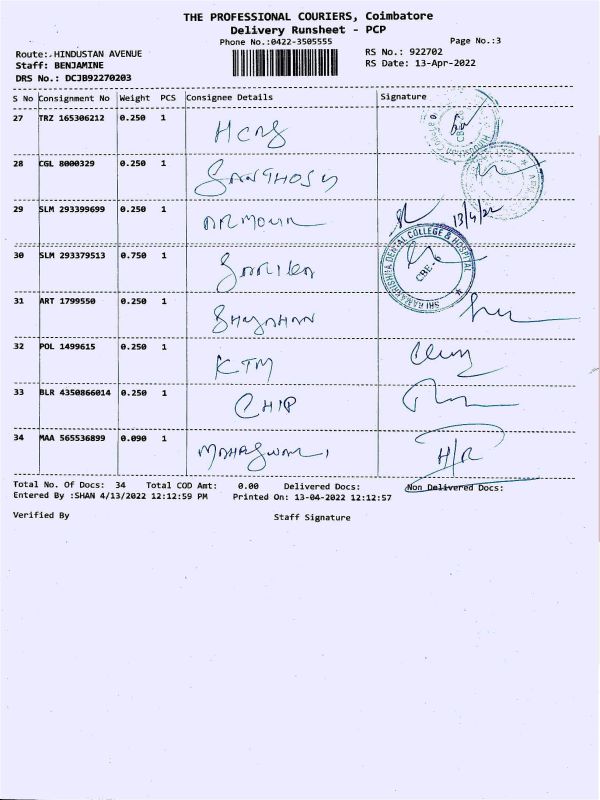 THE PROFESSIONAL COURIERS, Coimbatore
Delivery Runsheet - PCP
Phone No.:0422-3505555
Page No.:3
Route:.HINDUSTAN AVENUE
RS No.: 922702
Staff: BENJAMINE
RS Date: 13-Apr-2022
DRS No.: DCJB92270203
S No Consignment No Weight PCS Consignee Details Signature
27 TRZ 165306212 0.250 1
28 CGL 8000329 0.250 1 SANTHOSH
29 SLM 293399699 0.250 1 13/4/22
30 SLM 293379513 0.750 1 SARIKA
SRI RAMAKRISHNA DENTAL COLLEGE & HOSPITAL
CBE-6
31 ART 1799550 0.250 1
32 POL 1499615 0.250 1 KTM
33 BLR 4350866014 0.250 1 CHIP
34 MAA 565536899 0.090 1 H/R
Total No. Of Docs: 34 Total COD Amt: 0.00 Delivered Docs: Non Delivered Docs:
Entered By :SHAN 4/13/2022 12:12:59 PM Printed On: 13-04-2022 12:12:57
Verified By Staff Signature